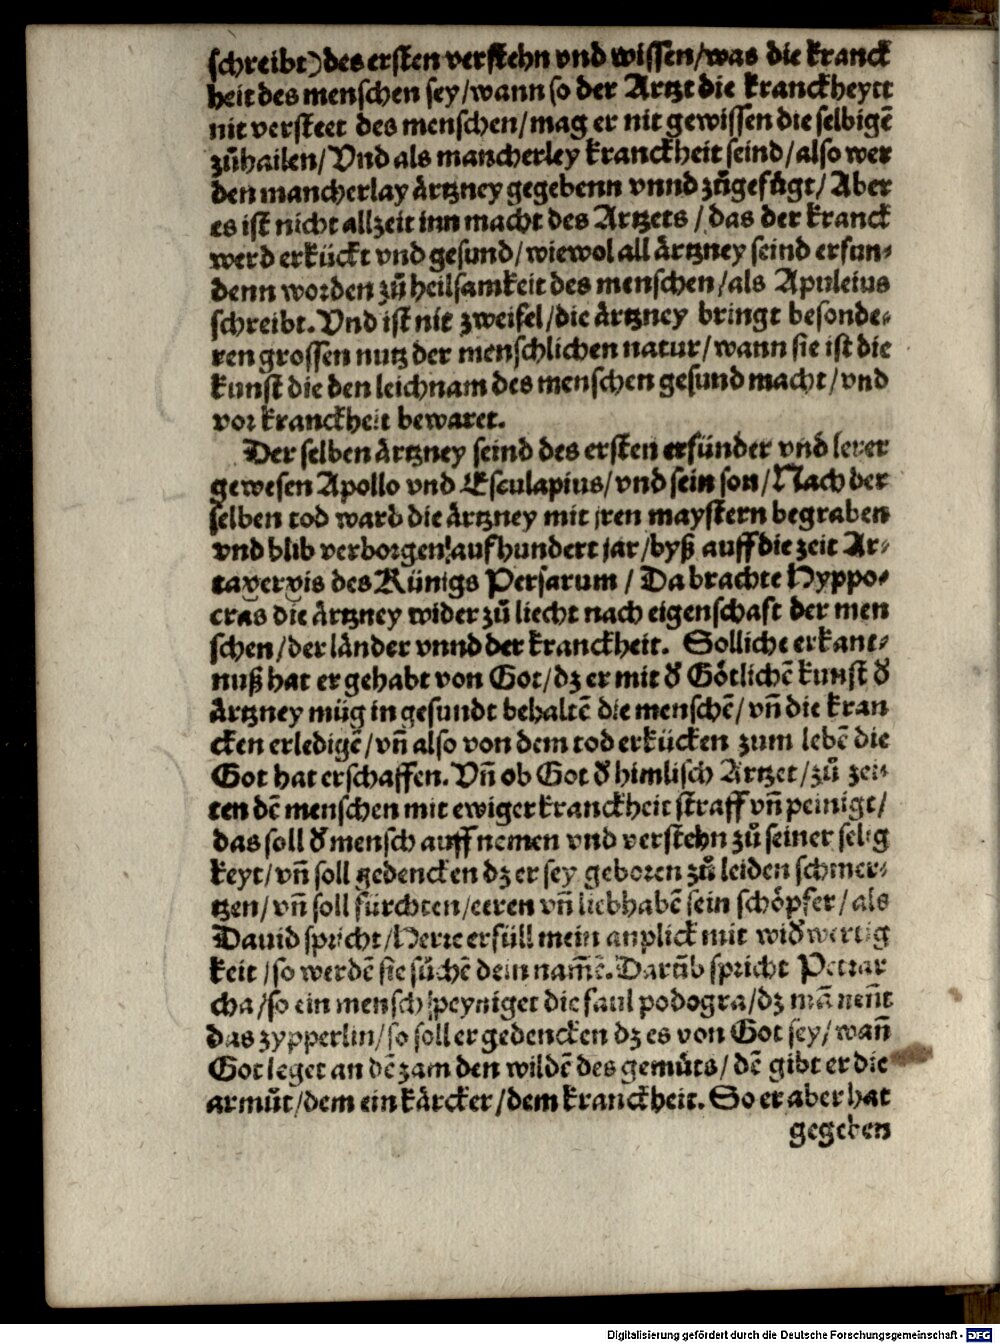 schreibt) des ersten verstehn vnd wissen/was die kranck
heit des menschen sey/wann so der Artzt die kranckheytt
nit versteet des menschen/mag er nit gewissen die selbigē
zůhailen/Vnd als mancherley kranckheit seind/also wer
den mancherlay ärtzney gegebenn vnnd zůgefügt/Aber
es ist nicht allzeit inn macht des Artzets /das der kranck
werd erkückt vnd gesund/wiewol all ärtzney seind erfun⸗
denn worden zů heilsamkeit des menschen/als Apuleius
schreibt. Vnd ist nit zweifel/die ärtzney bringt besonde⸗
ren grossen nutz der menschlichen natur/wann sie ist die
kunst die den leichnam des menschen gesund macht/vnd
vor kranckheit bewaret.
Der selben ärtzney seind des ersten erfünder vnd lerer
gewesen Apollo vnd Esculapius/vnd sein son/Nach der
selben tod ward die ärtzney mit jren maystern begraben
vnd blib verborgen auf hundert jar/byß auff die zeit Ar⸗
taxerxis des Künigs Persarum / Da brachte Hyppo⸗
cras die ärtzney wider zů liecht nach eigenschaft der men
schen/der länder vnnd der kranckheit. Solliche erkant⸗
nuß hat er gehabt von Got/dz er mit d̕ Götlichē kunst d̕
ärtzney müg in gesundt behaltē die menschē/vñ die kran
cken erledigē/vñ also von dem tod erkücken zum lebē die
Got hat erschaffen. Vñ ob Got d̕ himlisch Artzet/zů zei⸗
ten dē menschen mit ewiger kranckheit straff vñ peinigt/
das soll d̕ mensch auff nemen vnd verstehn zů seiner selig
keyt/vñ soll gedencken dz er sey geboren zů leiden schmer⸗
tzen/vñ soll fürchten/eeren vñ liebhabē sein schöpfer/als
Dauid spricht/Herre erfüll mein anplick mit wid̕wertig
keit/so werdē sie süchē dein namē. Darůb spricht Petrar
cha/so ein mensch peyniget die faul podogra/dz mā neñt
das zypperlin/so soll er gedencken dz es von Got sey/wañ
Got leget an dē zam den wildē des gemüts/dē gibt er die
armůt/dem ein kärcker/dem kranckheit. So er aber hat
gegeben
Digitalisierung gefördert durch die Deutsche Forschungsgemeinschaft - DFG